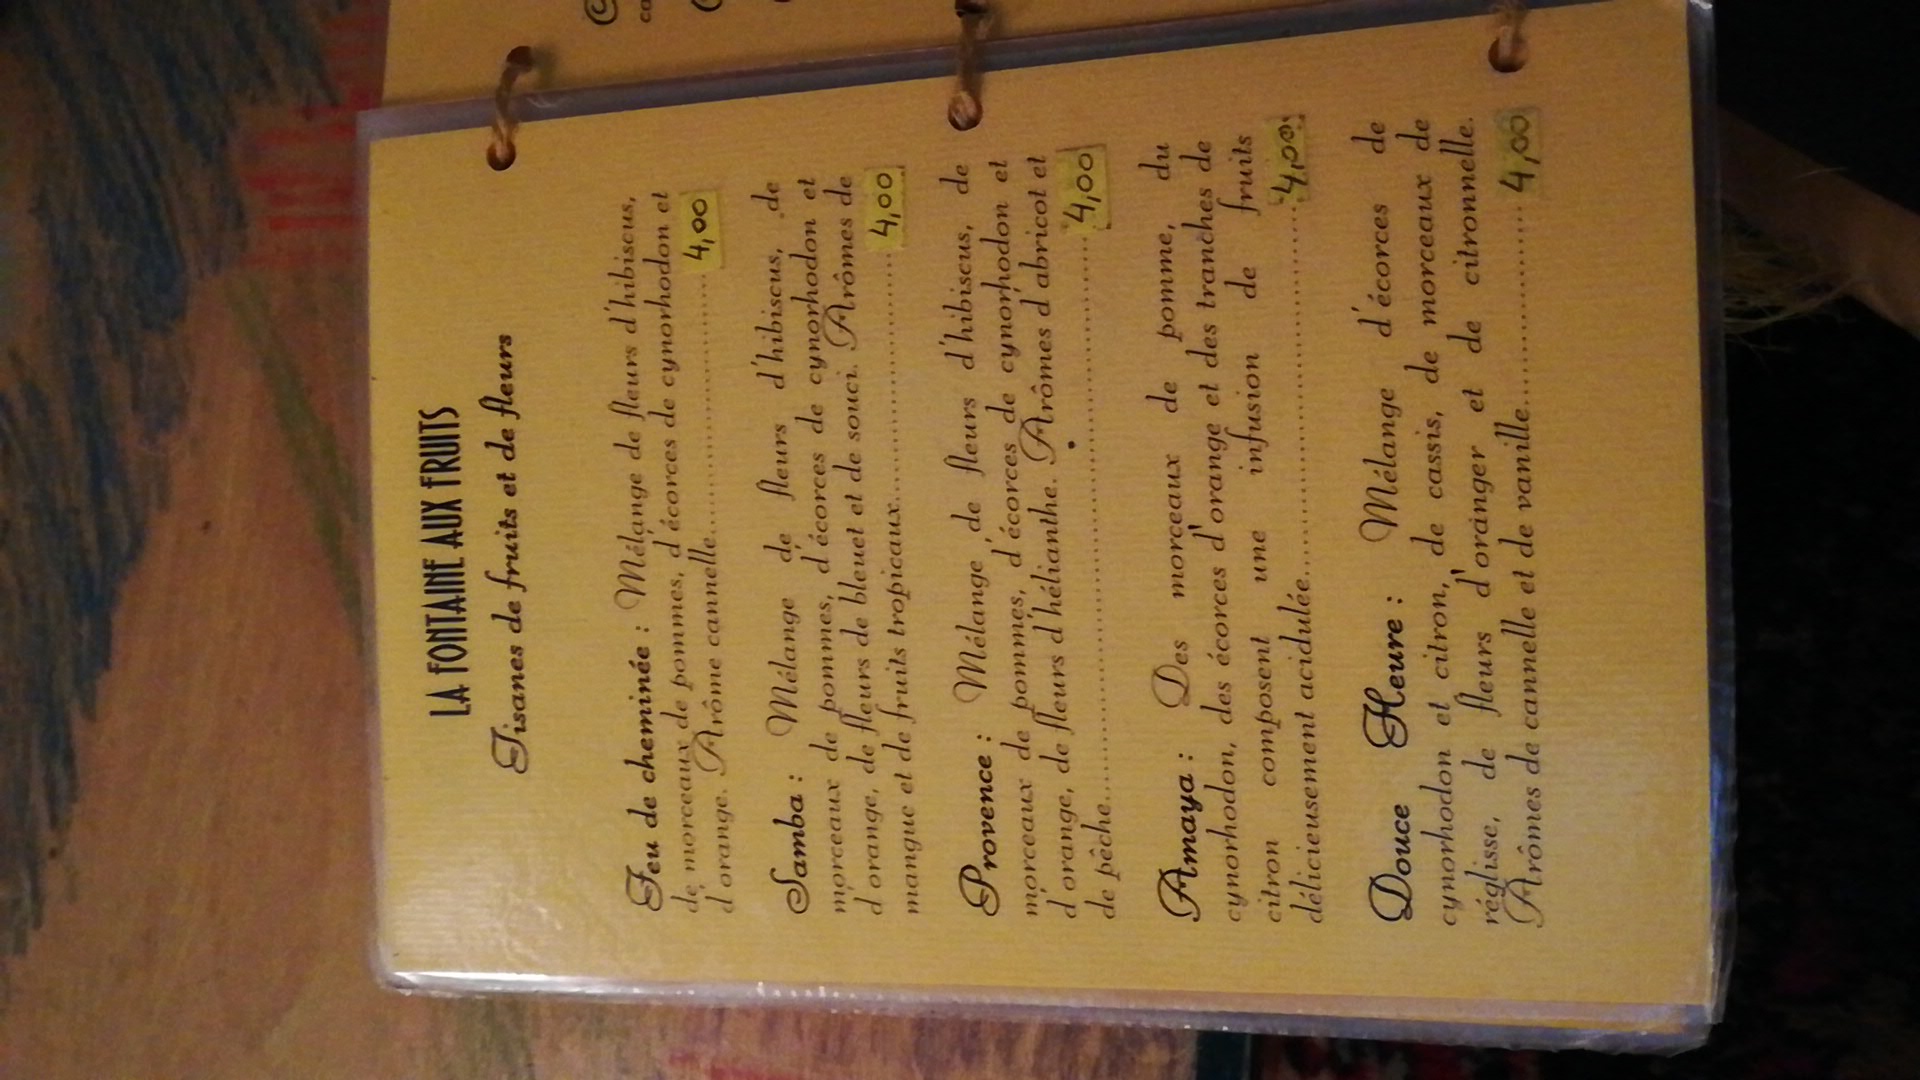 LA FONTAINE AUX FRUITS
Tisanes de fruits et de fleurs
Feu de cheminée : Mélange de fleurs d'hibiscus,
de morceaux de pommes, d'écorces de cynorhodon et
d'orange. Arôme cannelle.......................... 4,00
Samba : Mélange de fleurs d'hibiscus, de
morceaux de pommes, d'écorces de cynorhodon et
d'orange, de fleurs de bleuet et de souci. Arômes de
mangue et de fruits tropicaux.......................... 4,00
Provence : Mélange de fleurs d'hibiscus, de
morceaux de pommes, d'écorces de cynorhodon et
d'orange, de fleurs d'hélianthe. Arômes d'abricot et
de pêche.......................................................... 4,00
Amaya : Des morceaux de pomme, du
cynorhodon, des écorces d'orange et des tranches de
citron composent une infusion de fruits
délicieusement acidulée.................................... 4,00
Douce Heure : Mélange d'écorces de
cynorhodon et citron, de cassis, de morceaux de
réglisse, de fleurs d'oranger et de citronnelle.
Arômes de cannelle et de vanille.................... 4,00